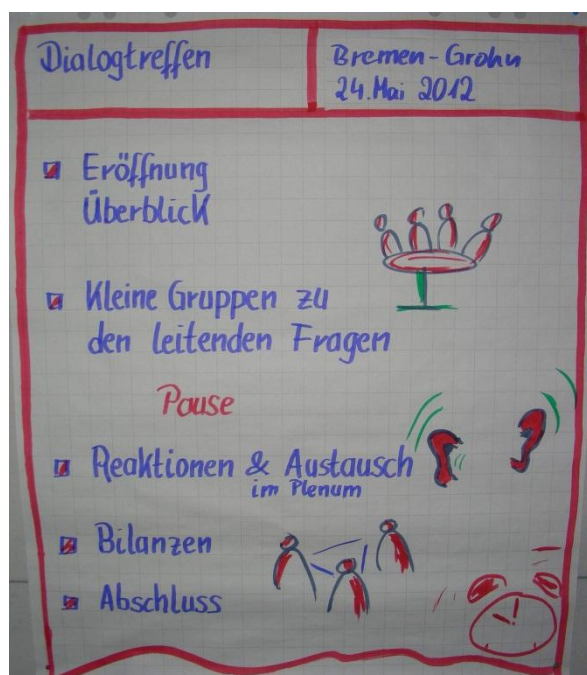 Dialogtreffen
Bremen-Grohn
24. Mai 2012
Eröffnung
Überblick
Kleine Gruppen zu
den leitenden Fragen
Pause
Reaktionen & Austausch
im Plenum
Bilanzen
Abschluss